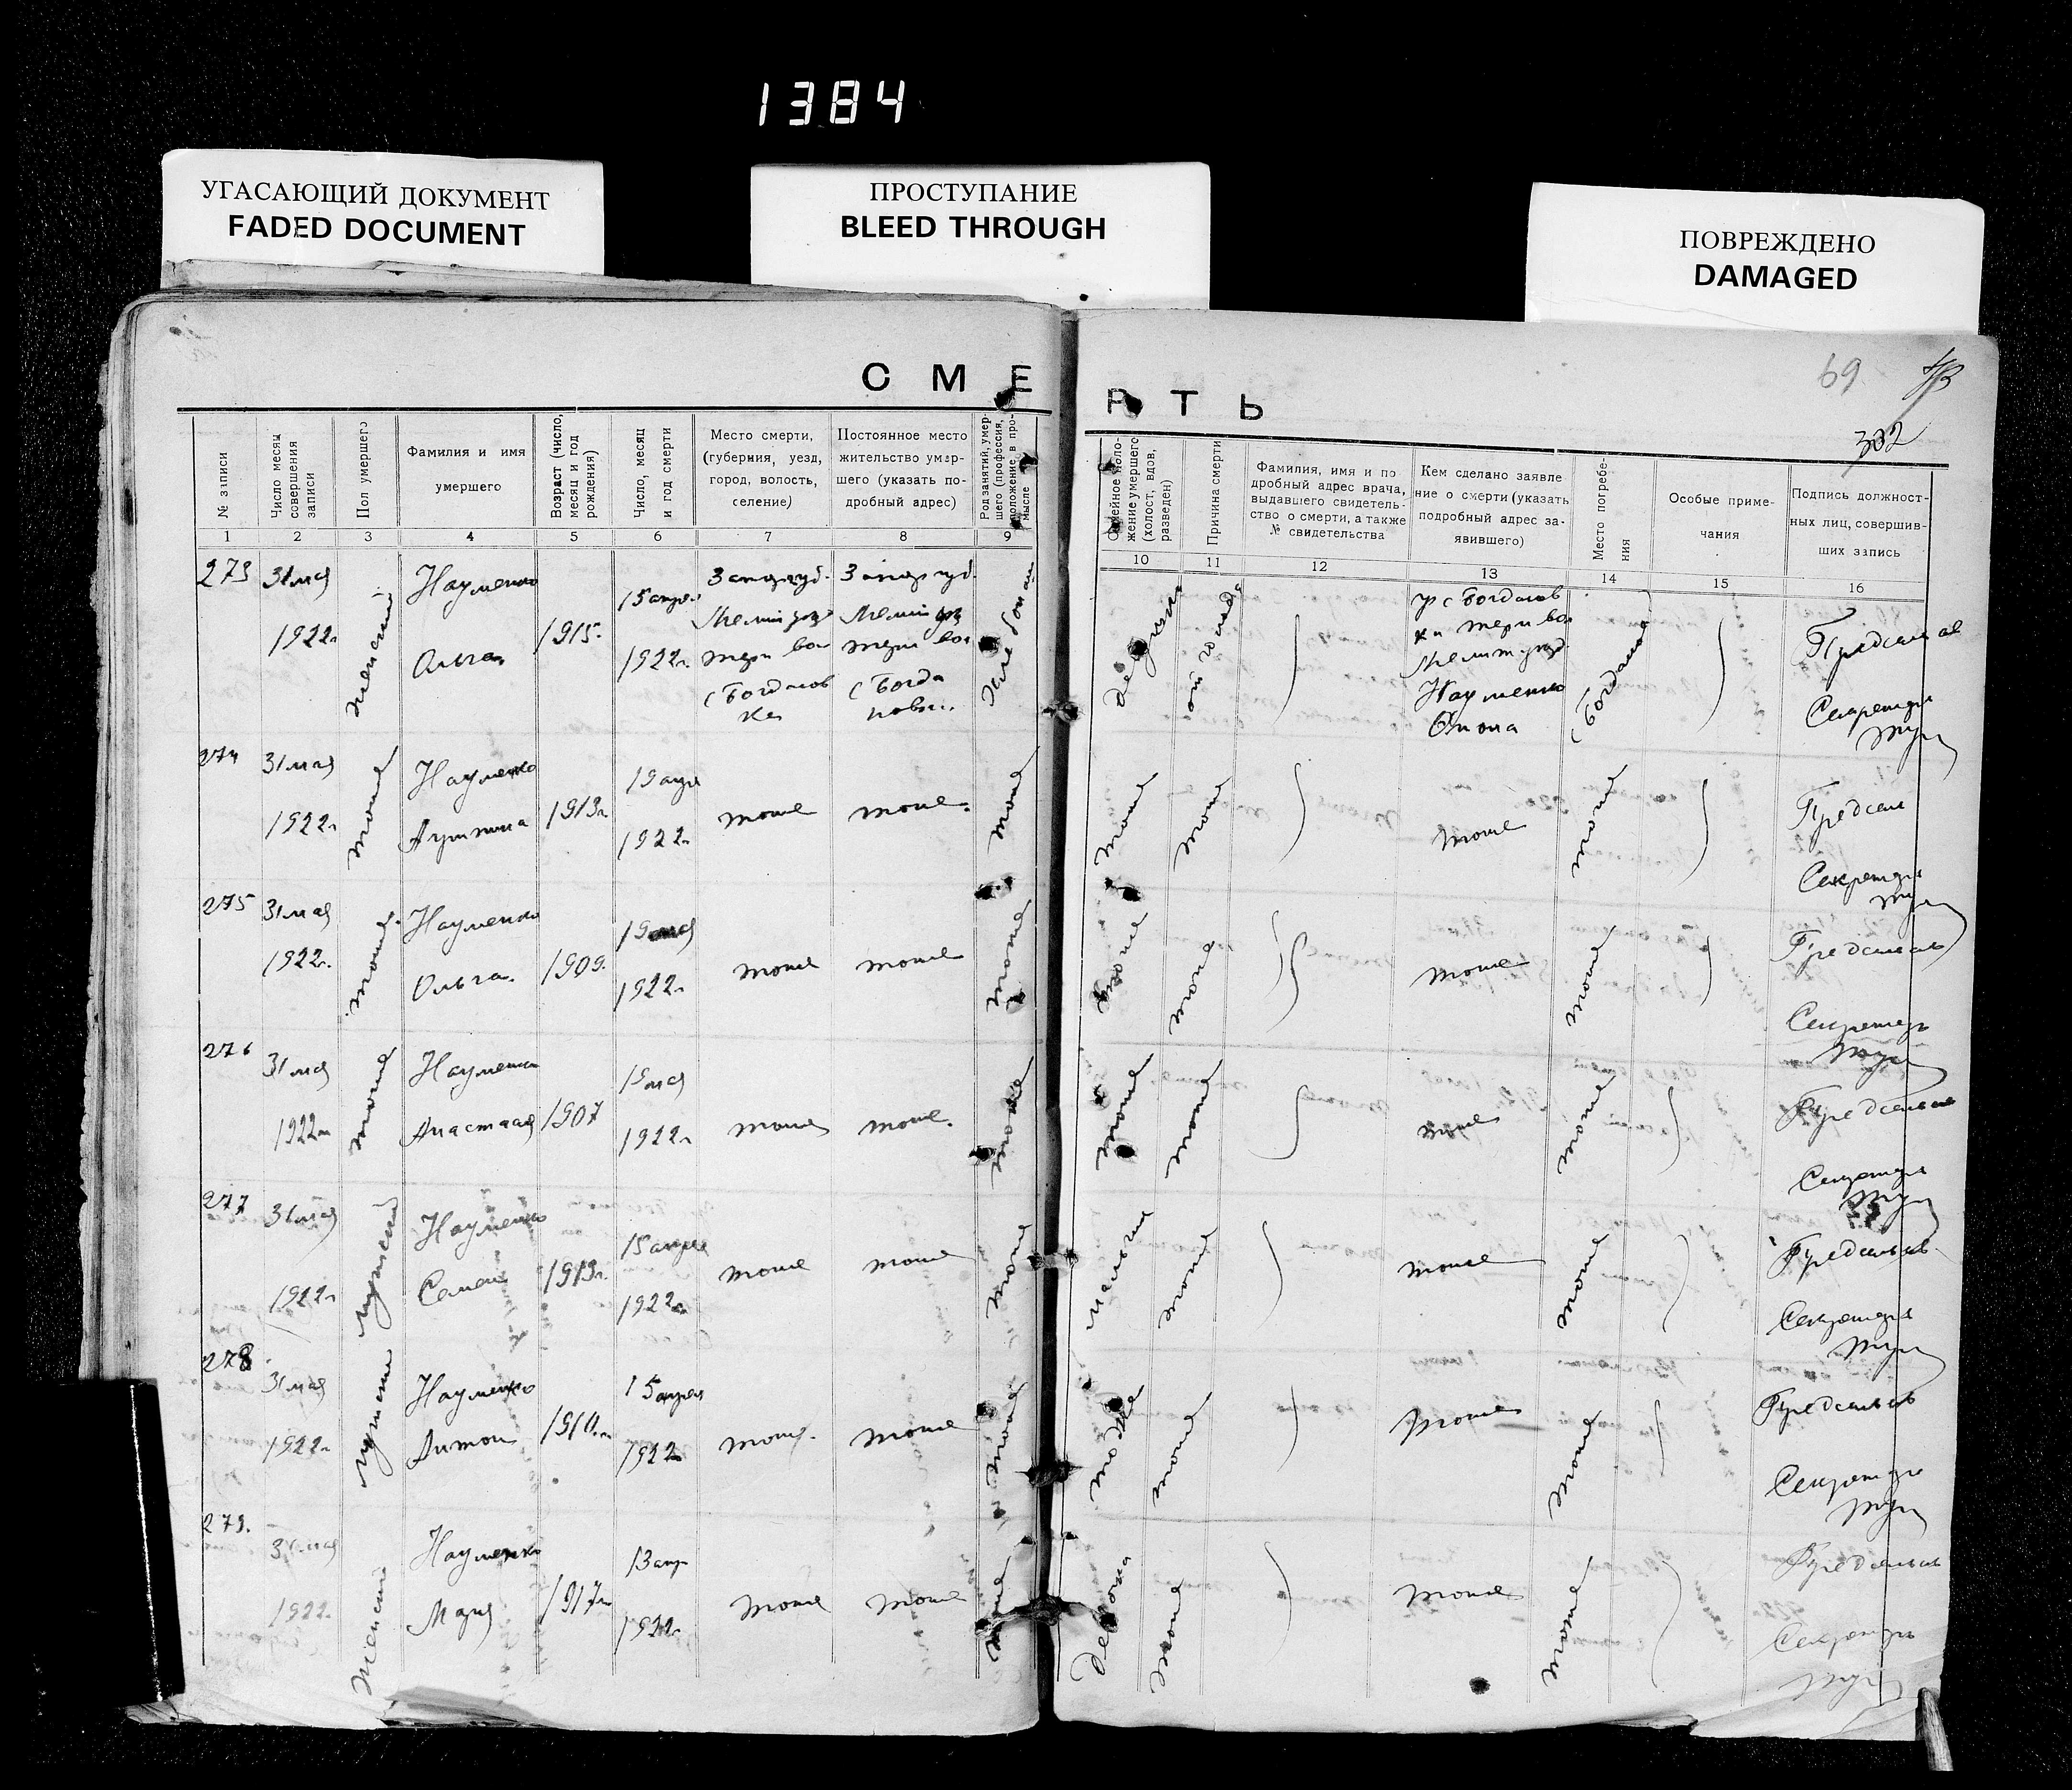 1384
УГАСАЮЩИЙ ДОКУМЕНТ
FADED DOCUMENT
ПРОСТУПАНИЕ
BLEED THROUGH
ПОВРЕЖДЕНО
DAMAGED
69
332
СМЕ
РТЬ
№ записи
Число месяц совершения записи
Пол умершего
Фамилия и имя
умершего
Возраст (число, месяц и год рождения)
Число, месяц и год смерти
Место смерти,
(губерния, уезд,
город, волость,
селение)
Постоянное место
жительство умер-
шего (указать по-
дробный адрес)
Род занятий, умер-
шего (профессия,
положение в про-
мысле
Семейное поло-
жение умершего
(холост, вдов,
разведен)
Причина смерти
Фамилия, имя и по
дробный адрес врача,
выдавшего свидетель-
ство о смерти, а также
№ свидетельства
Кем сделано заявле-
ние о смерти (указать
подробный адрес за-
явившего)
Место погребе-
ния
Особые приме-
чания
Подпись должност-
ных лиц, совершив-
ших запись
1 2 3 4 5 6 7 8 9 10 11 12 13 14 15 16
273 31 мая 1922г женский Науменко Ольга 1915г. 15 апрел 1922г. Запоргуб. Мелит уез вол с Богданов ка Запор губ. Мелит уез вол с Богда новка хлебопаш девушка от голода гр с Богданов ки вол Мелит уезд Науменко с Богдановка Секретарь
274 31 мая 1922г тоже Науменко 1913г 15 апр 1922г тоже тоже. тоже тоже тоже тоже тоже Секретарь
275 31 мая 1922г. тоже Науменко Ольга. 1909. 15 мая 1922г тоже тоже тоже тоже тоже тоже тоже Секретарь
276 31 мая 1922г тоже Науменко Анастасия 1907 15 мая 1922г тоже тоже. тоже тоже тоже тоже тоже Секретарь
277 31 мая 1922г мужской Науменко Семен 1913г. 15 апреля 1922г тоже тоже тоже мальчик тоже тоже тоже Секретарь
278 31 мая 1922г мужской Науменко Антон 1910г. 15 апреля 1922 тоже. тоже тоже тоже тоже тоже тоже Секретарь
279. 31 мая 1922. Женский Науменко Мария 1917г 13 апр 1922г тоже тоже тоже тоже тоже тоже Секретарь